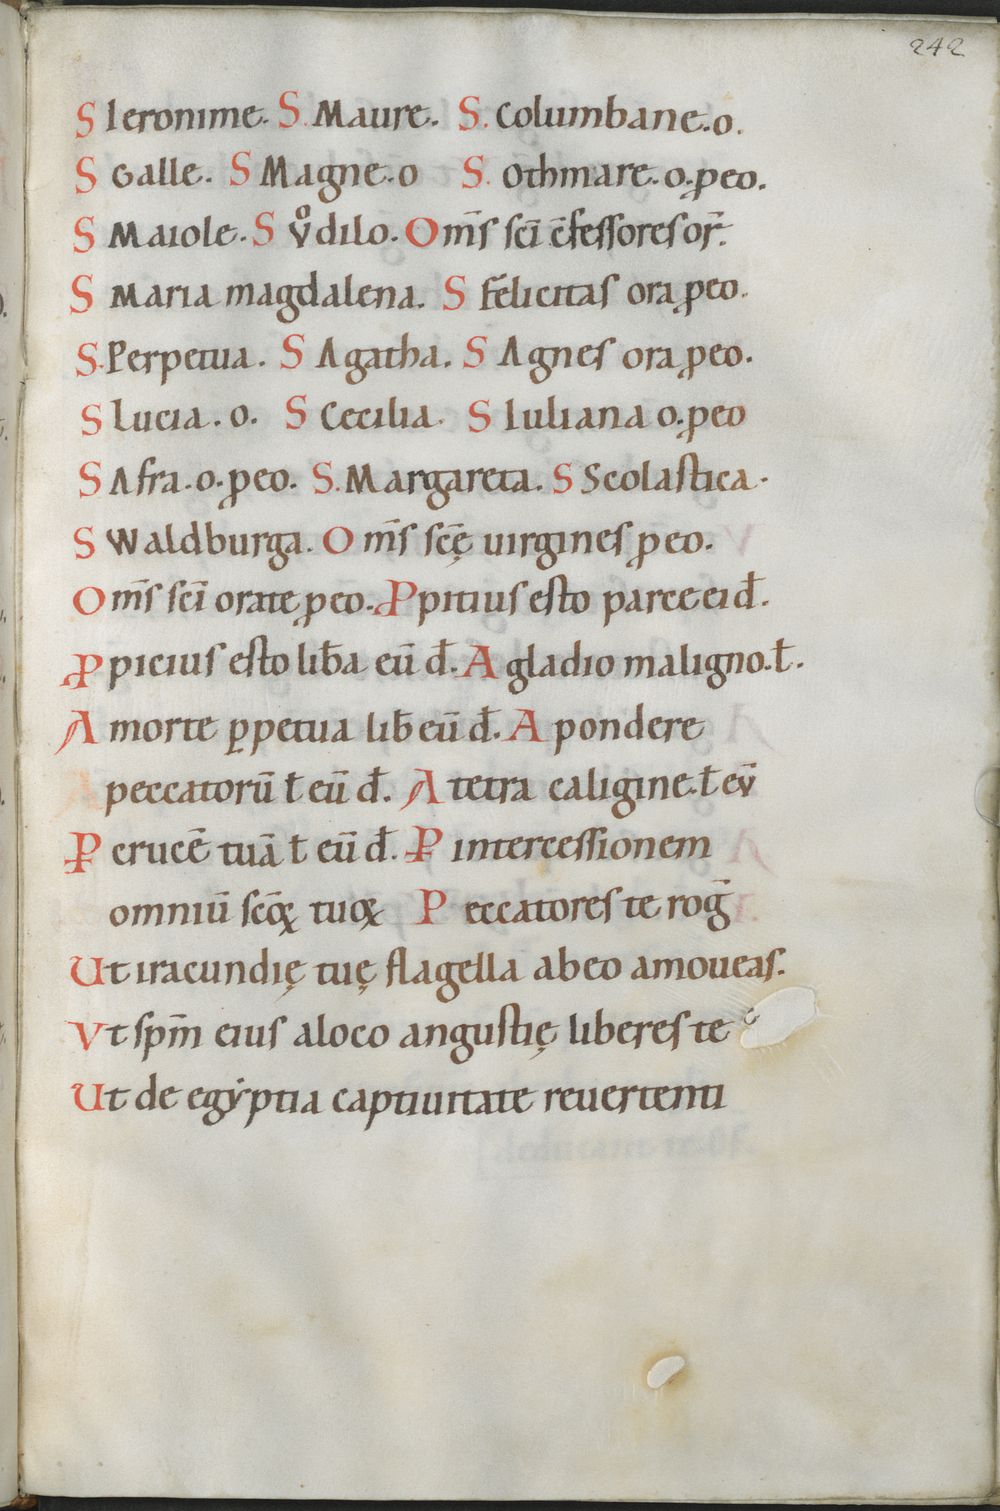 242
S Ieronime. S. Maure. S. Columbane. o.
S Galle. S Magne. o S. Othmare. o. ꝓ eo.
S Maiole. S Vͦdilo. Om̄s sc̄i c̄fessores or̄.
S Maria magdalena. S Felicitas ora ꝓ eo.
S. Perpetua. S Agatha. S Agnes ora ꝓ eo.
S Lucia. o. S Cecilia. S Iuliana o. ꝓ eo
S Afra. o. ꝓ eo. S. Margareta. S Scolastica.
S Waldburga. Om̄s sc̄ę uirgines ꝓ eo.
Om̄s sc̄i orate ꝓ eo. Ꝓpitius esto parce ei d̄.
Ꝓpicius esto lib̄a eū d̄. A gladio maligno. ł.
A morte ꝑpetua lib̄ eū d̄. A pondere
A peccatorū ł eū d̄. A tetra caligine. ł eū
Ꝑ crucē tuā ł eū d̄. Ꝑ intercessionem
omniū sc̄oꝝ tuoꝝ Peccatores te roḡ
Ut iracundię tuę flagella ab eo amoueas.
Vt sp̄m eius a loco angustię liberes te
Ut de egẏptia captiuitate reuertenti